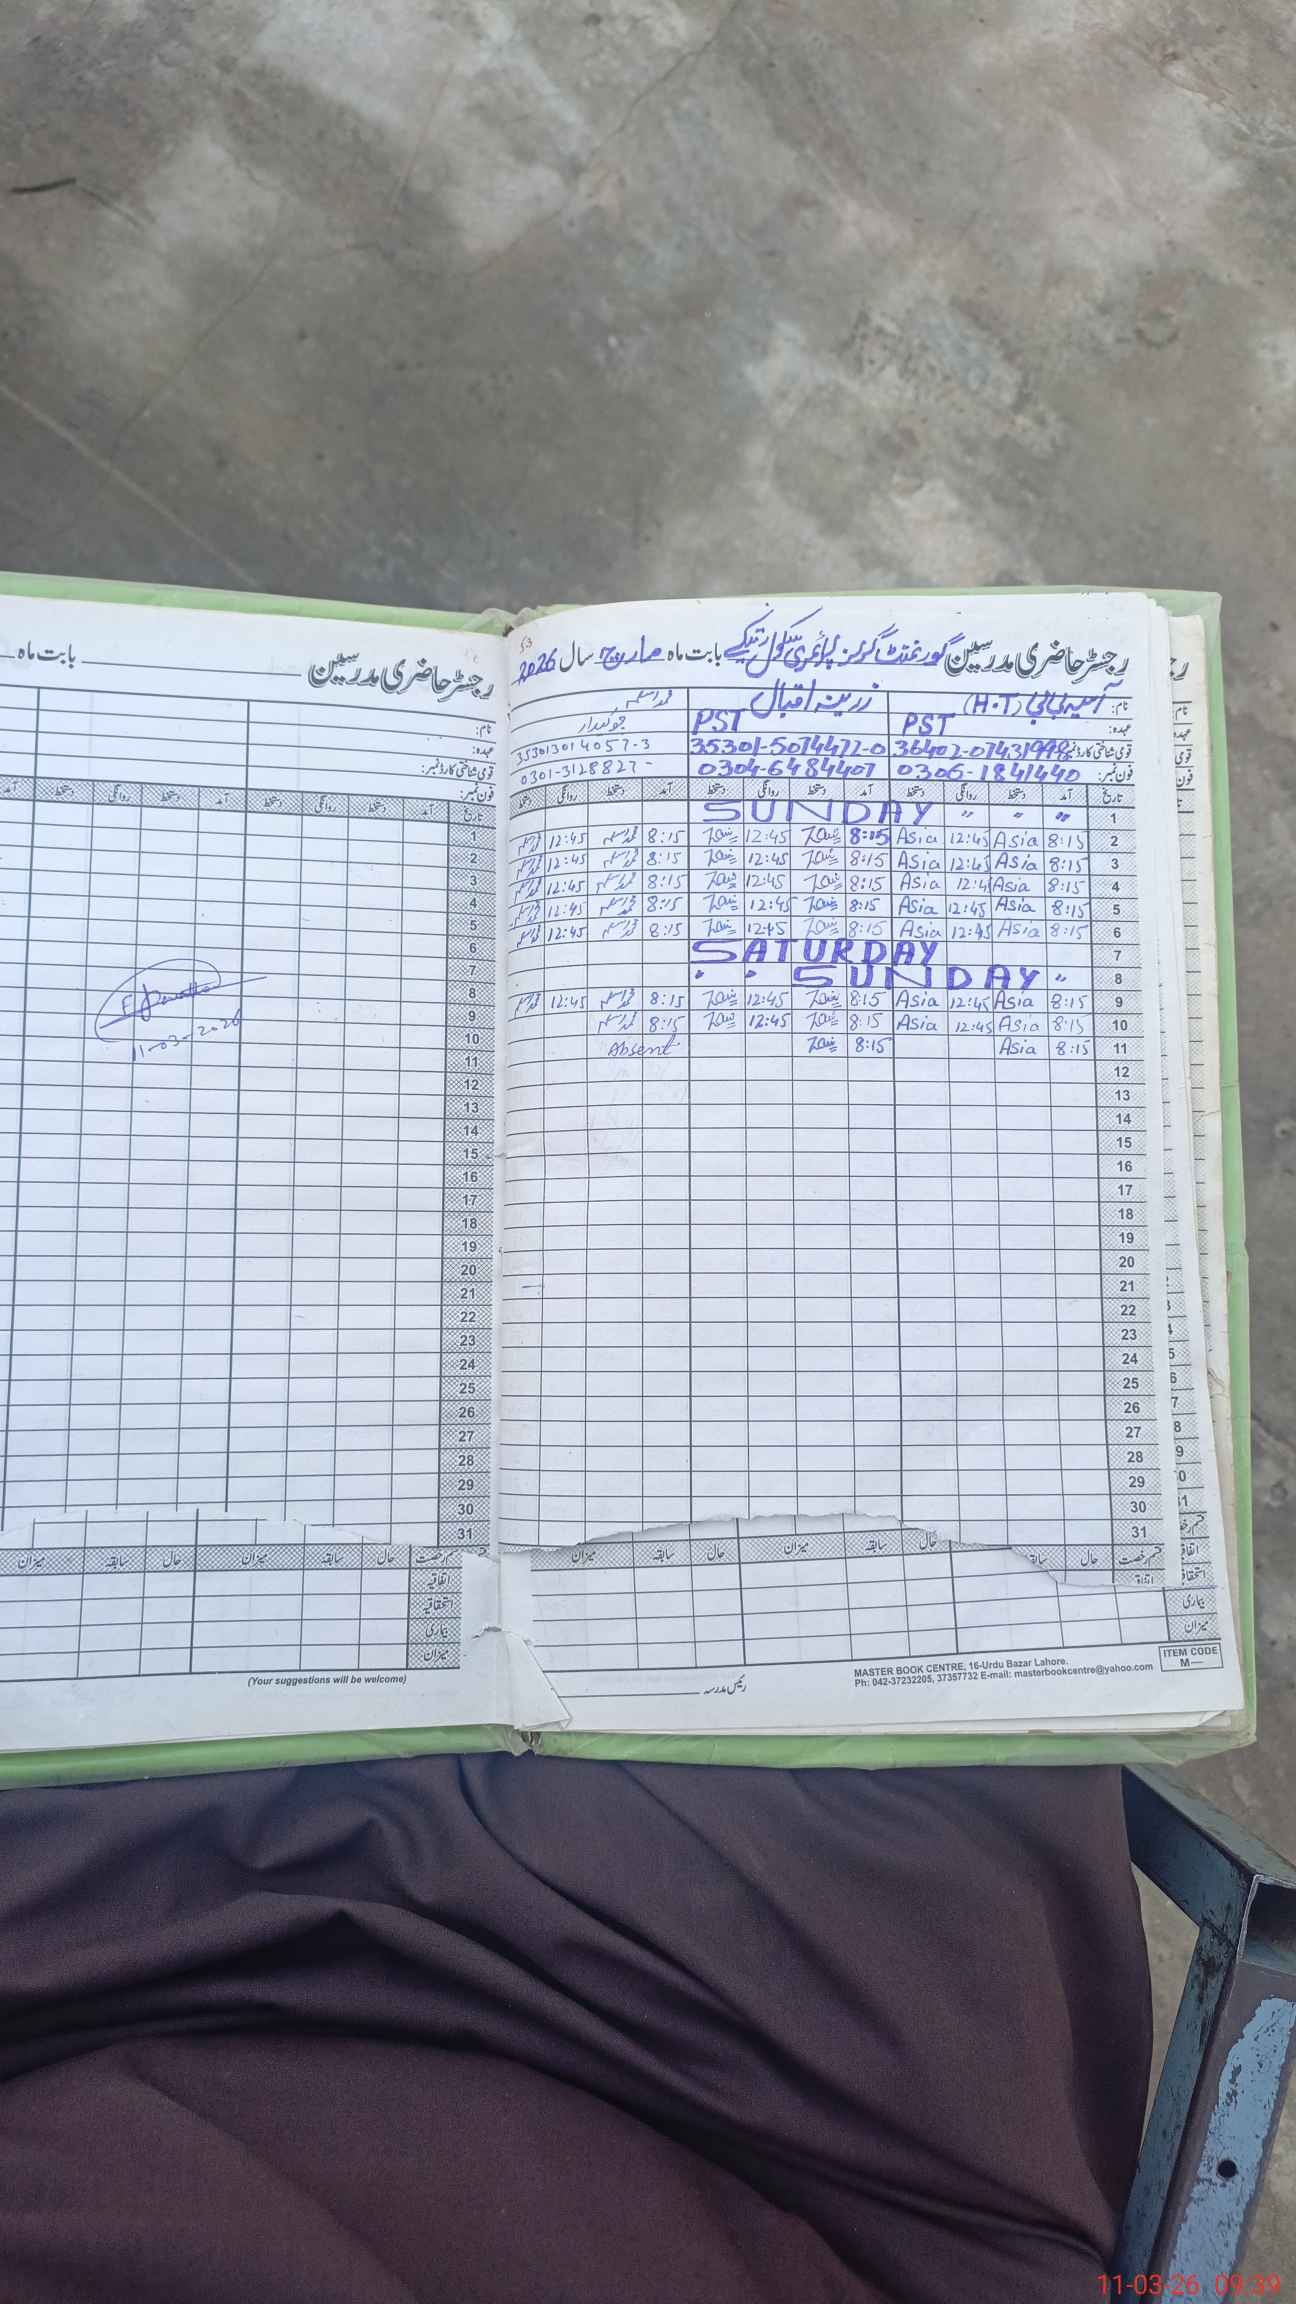 رجسٹر حاضری مدرسین گورنمنٹ گرلز پرائمری سکول بابت ماہ مارچ سال 2026
53
نام: آسیہ بی بی (H.T) زرینہ اقبال محمد اسلم
عہدہ: PST PST چوکیدار
قومی شناختی کارڈ نمبر: 36402-0743199-8 35301-5074477-0 353013014057-3
فون نمبر: 0306-1841440 0304-6484407 0301-3128827
تاریخ آمد دستخط روانگی دستخط آمد دستخط روانگی دستخط آمد دستخط روانگی دستخط
1 SUNDAY " " "
2 8:15 Asia 12:45 Asia 8:15 12:45 8:15 محمد اسلم 12:45 محمد اسلم
3 8:15 Asia 12:45 Asia 8:15 12:45 8:15 محمد اسلم 12:45 محمد اسلم
4 8:15 Asia 12:4 Asia 8:15 12:45 8:15 محمد اسلم 12:45 محمد اسلم
5 8:15 Asia 12:45 Asia 8:15 12:45 8:15 محمد اسلم 12:45 محمد اسلم
6 8:15 Asia 12:45 Asia 8:15 12:45 8:15 محمد اسلم 12:45 محمد اسلم
7 SATURDAY
8 SUNDAY "
9 8:15 Asia 12:45 Asia 8:15 12:45 8:15 محمد اسلم 12:45 محمد اسلم
10 8:15 Asia 12:45 Asia 8:15 12:45 8:15 محمد اسلم
11 8:15 Asia 8:15 Absent
12
13
14
15
16
17
18
19
20
21
22
23
24
25
26
27
28
29
30
31
قسم رخصت حال سابقہ حال سابقہ میزان حال سابقہ میزان
اتفاقیہ
استحقاقیہ
بیماری
میزان
رئیس مدرسہ
MASTER BOOK CENTRE, 16-Urdu Bazar Lahore.
Ph: 042-37232205, 37357732 E-mail: masterbookcentre@yahoo.com
ITEM CODE
M—
رجسٹر حاضری مدرسین بابت ماہ
نام:
عہدہ:
قومی شناختی کارڈ نمبر:
فون نمبر:
تاریخ آمد دستخط روانگی دستخط آمد دستخط روانگی دستخط آمد
1
2
3
4
5
6
7
8
9
10
11
12
13
14
15
16
17
18
19
20
21
22
23
24
25
26
27
28
29
30
31
11-03-2026
قسم رخصت حال سابقہ میزان حال سابقہ میزان
اتفاقیہ
استحقاقیہ
بیماری
میزان
(Your suggestions will be welcome)
11-03-26 09:39